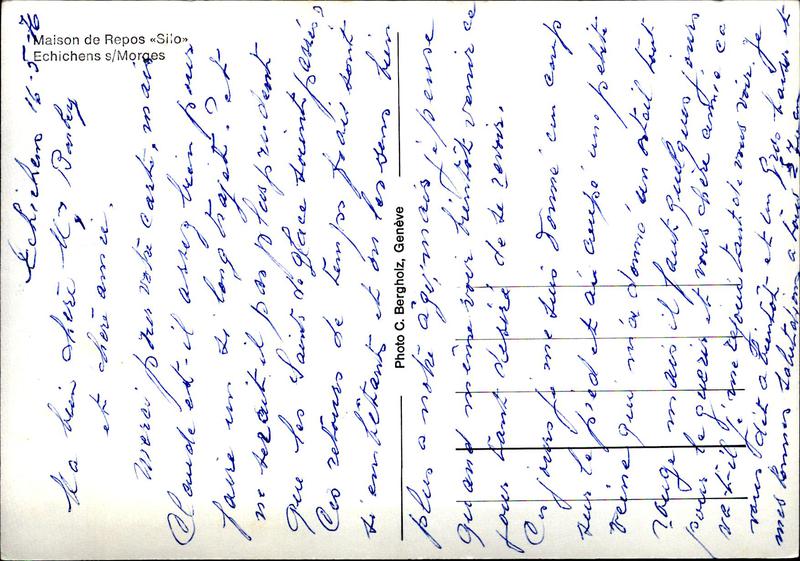 Maison de Repos «Silo»
Echichens s/Morges
Photo C. Bergholz, Genève
Echichens 16.5.
Ma bien chère
et chère amie.
Merci pour votre carte, mais
Claude est-il assez bien pour
faire un si long trajet? et
ne serait il pas plus prudent
que les Saints de glace soient passés?
Ces retours de temps froids sont
si embêtants et on les sens bien
plus a notre âge, mais je pense
quand même voir bientôt venir ce
jour tant désiré de se revoir.
Ces jours je me suis donné un coup
sur le pied et ai coupé une petite
veine qui m'a donné un orteil tout
rouge mais il faut quelques jours
pour le guérir et vous chère amie ça
va-t-il? je me réjouis tant de vous voir. Je
vous dit a bientôt et un gros baiser et
mes bonnes salutations à tous